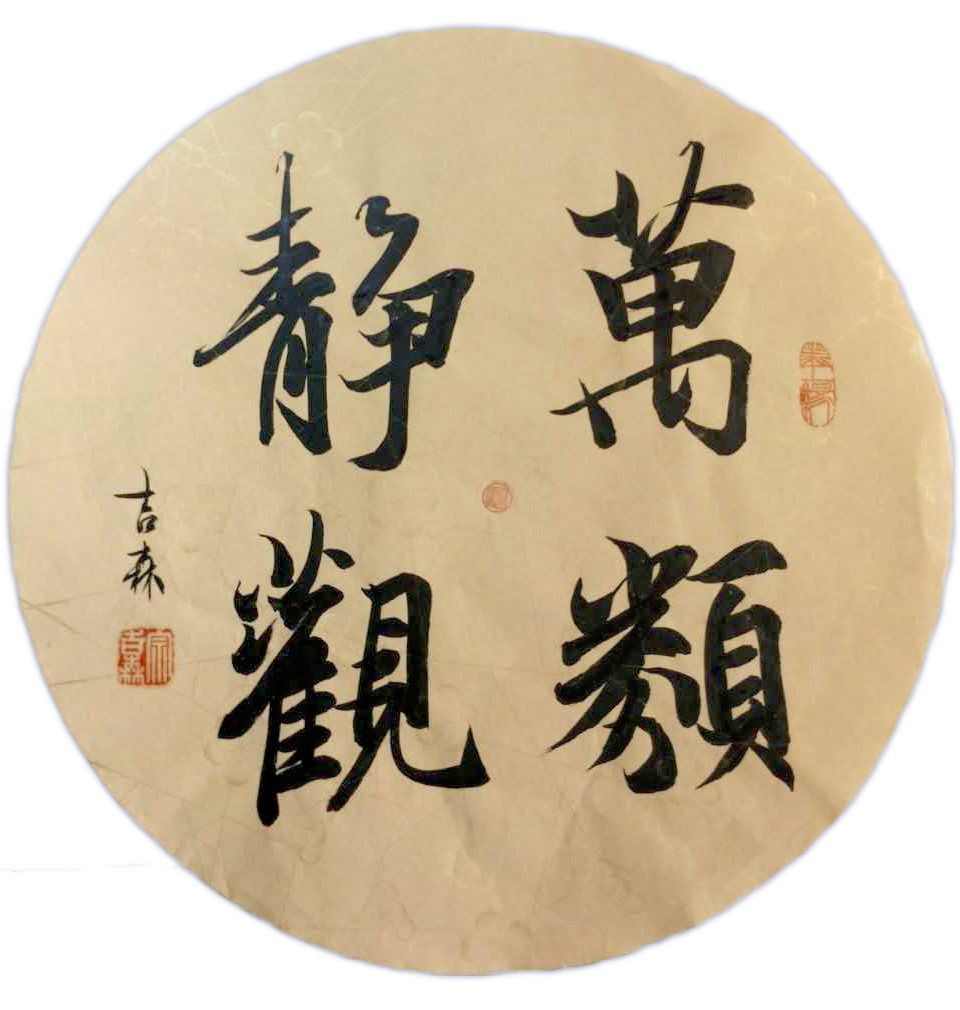 萬類
静觀
吉森